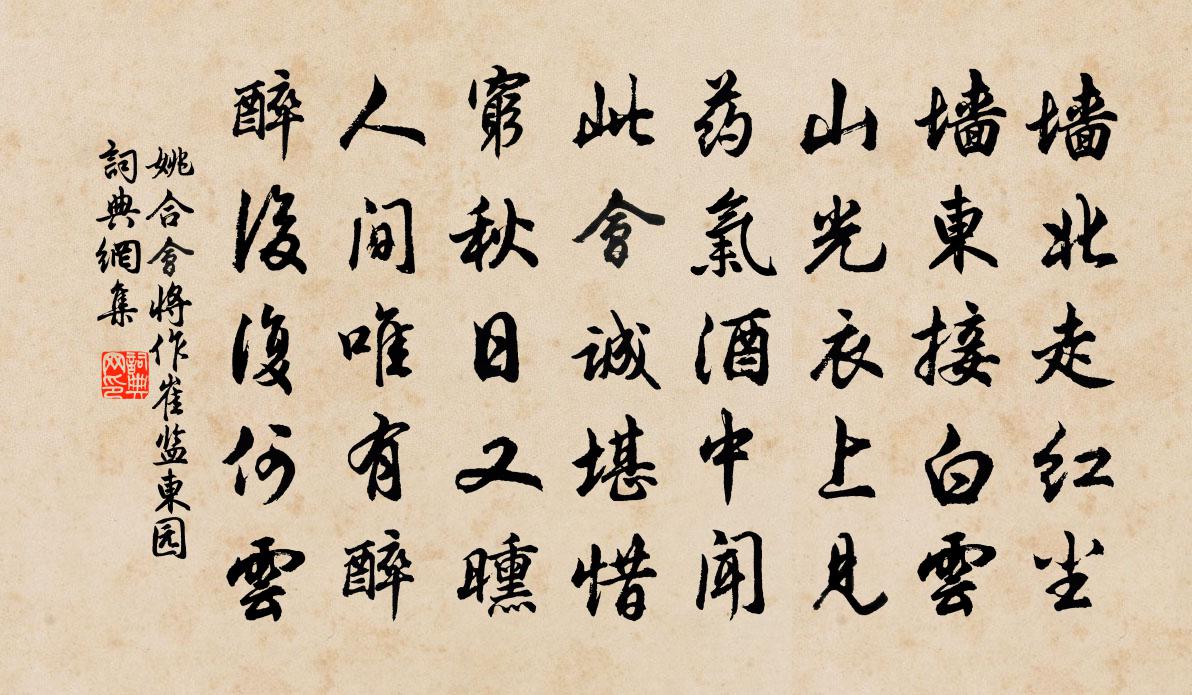 墙北走红尘
墙東接白雲
山光衣上見
药氣酒中闻
此會誠堪惜
窮秋日又曛
人间唯有醉
醉後復何雲
姚合會將作崔监東园
詞典網集
詞典网印